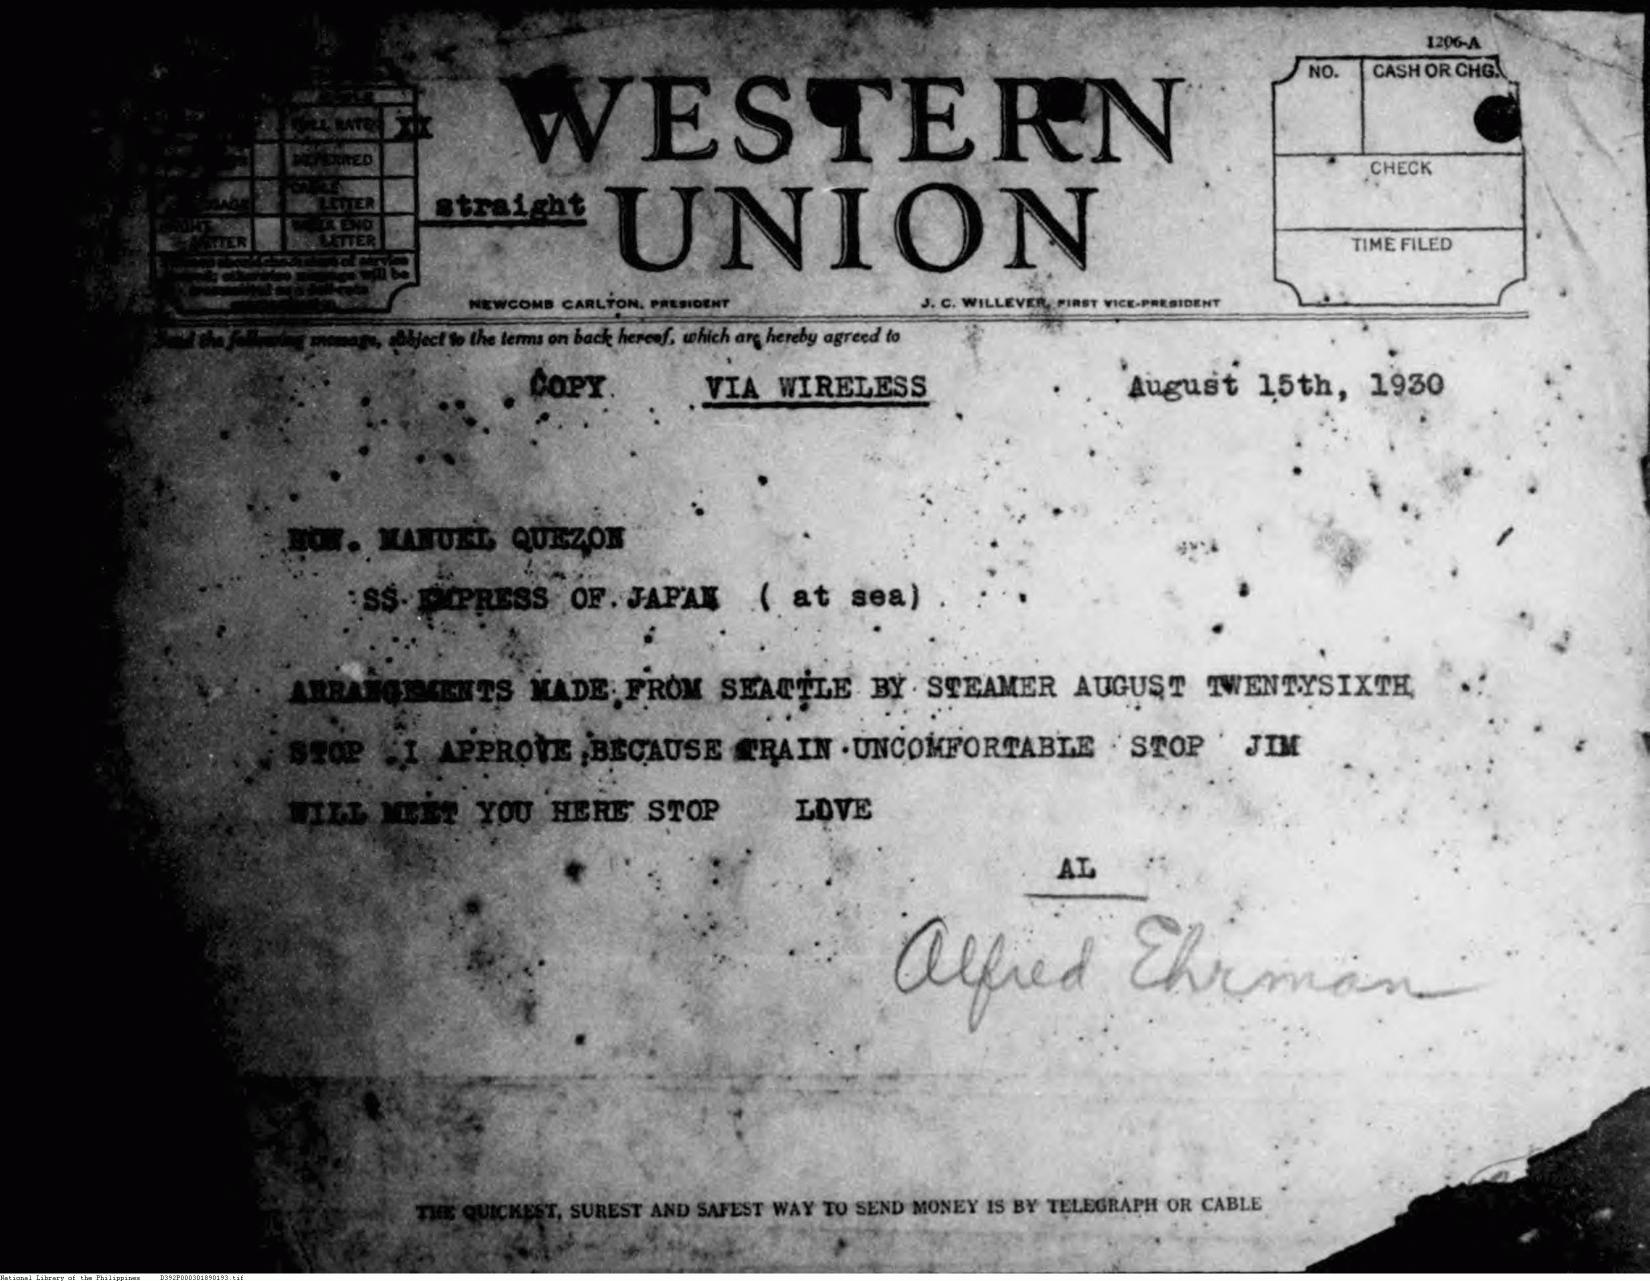 1206-A
WESTERN
UNION
FULL RATE XX
DEFERRED
CABLE
LETTER
WEEK END
LETTER
straight
NO. CASH OR CHG.
CHECK
TIME FILED
NEWCOMB CARLTON, PRESIDENT J. C. WILLEVER, FIRST VICE-PRESIDENT
Send the following message, subject to the terms on back hereof, which are hereby agreed to
COPY VIA WIRELESS August 15th, 1930
HON. MANUEL QUEZON
SS EMPRESS OF JAPAN ( at sea)
ARRANGEMENTS MADE FROM SEATTLE BY STEAMER AUGUST TWENTYSIXTH
STOP I APPROVE BECAUSE TRAIN UNCOMFORTABLE STOP JIM
WILL MEET YOU HERE STOP LOVE
AL
Alfred Ehrman
THE QUICKEST, SUREST AND SAFEST WAY TO SEND MONEY IS BY TELEGRAPH OR CABLE
National Library of the Philippines D392P000301890193.tif